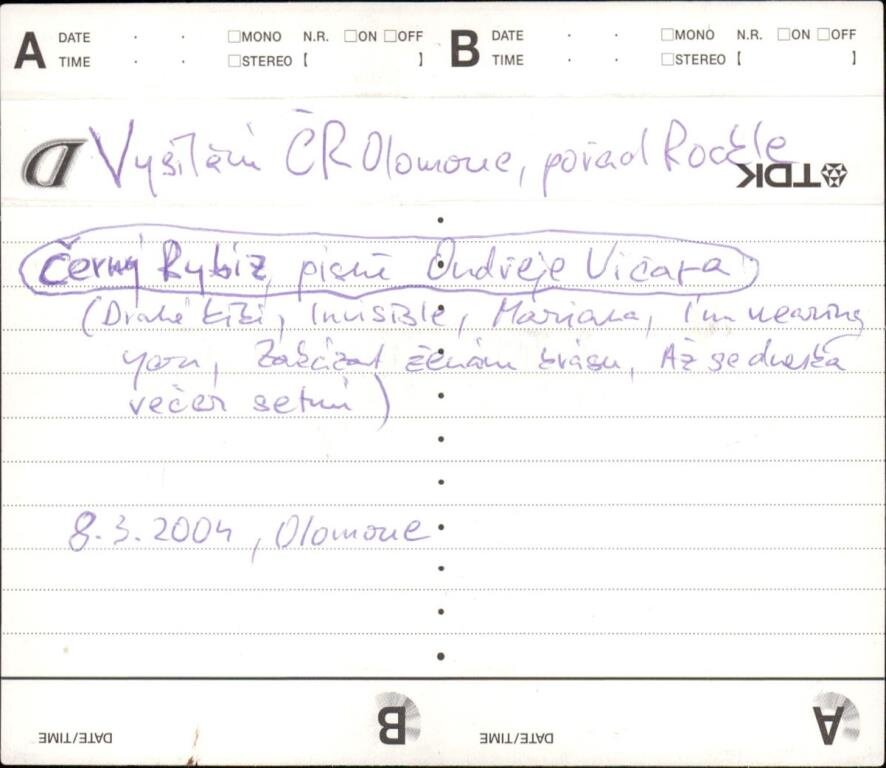 A DATE · · □MONO N.R. □ON □OFF B DATE · · □MONO N.R. □ON □OFF
TIME · · □STEREO [ ] TIME · · □STEREO [ ]
Vysílání ČR Olomouc, pořad Rockle
D TDK
Černý Rybíz, písně Ondřeje Vičara
(Drahé Kiki, Invisible, Mariana, I'm nearing
you, Zakázat ženám krásu, Až se dneska
večer setmí)
8.3.2004, Olomouc
DATE/TIME B DATE/TIME A